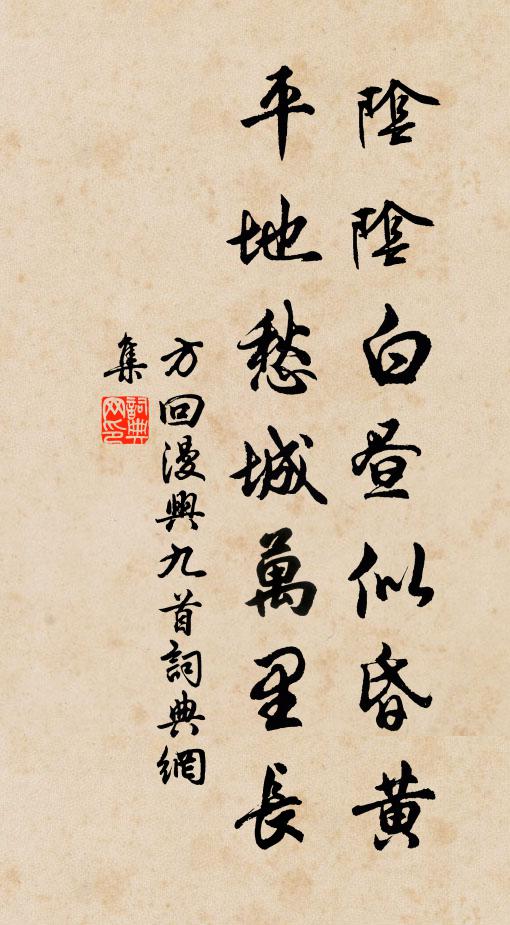 陰陰白昼似昏黃
平地愁城萬里長
方回漫興九首詞典網
集
詞典
网印